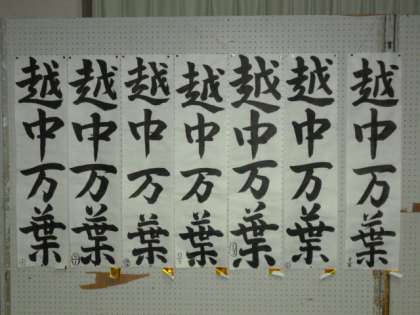 越中万葉
越中万葉
越中万葉
越中万葉
越中万葉
越中万葉
越中万葉